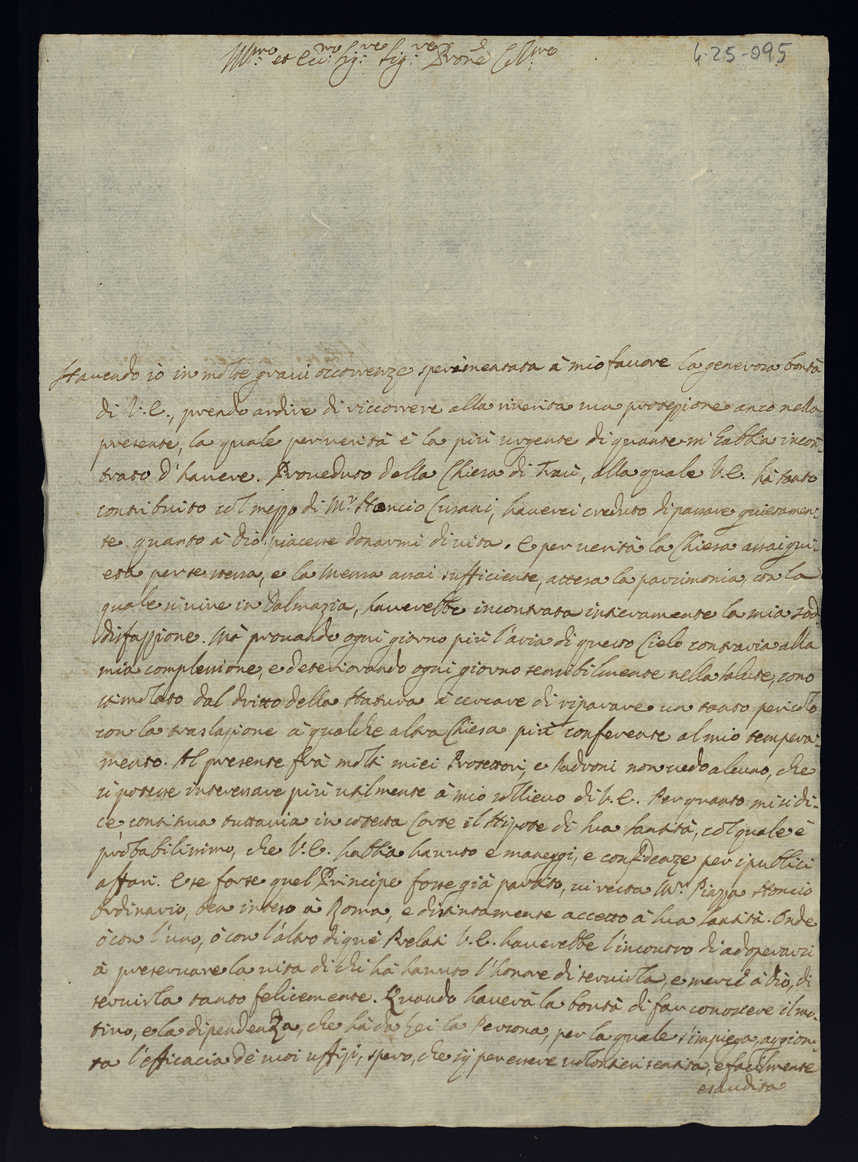 Ill:mo et Ecc:mo Sig:re Sig:re Prone Col:mo
4-25-095
Havendo io in molte gravi occorrenze sperimentata à mio favore la generosa bontà
di V.E., prendo ardire di riccorrere alla riverita sua protezzione anco nella
presente, la quale per verità è la più urgente di quante mi habbia incon=
trato d'havere. Proveduto della Chiesa di Traù, alla quale V.E. hà tanto
contribuito col mezzo di M.r Noncio Cusani, haverei creduto di passare quietamen=
te quanto à Dio piacesse donarmi di vita. E per verità la Chiesa assai qui=
eta per se stessa, e la Mensa assai sufficiente, attesa la parsimonia, con la
quale si vive in Dalmazia, haverebbe incontrata intieramente la mia sod=
disfazzione. Mà provando ogni giorno più l'aria di questo Cielo contraria alla
mia complessione, e deteriorando ogni giorno sensibilmente nella salute, sono
stimolato dal dritto della Natura à cercare di riparare un tanto pericolo
con la traslazione à qualche altra Chiesa più conferente al mio tempera=
mento. Al presente frà molti miei Protettori, e Padroni non vedo alcuno, che
si potesse interessare più utilmente à mio sollievo di V.E. Per quanto mi si di=
ce continua tuttavia in cotesta Corte il Nipote di Sua Santità, col quale è
probabilissimo, che V.E. habbia havuto e maneggi, e confidenze per i publici
affari. E se forse quel Principe fosse già partito, vi resta M.r Piazza Noncio
Ordinario, ben inteso à Roma, e distintamente accetto à Sua Santità. Onde
ò con l'uno, ò con l'altro di què Prelati V.E. haverebbe l'incontro di adoperarsi
à preservare la vita di chi hà havuto l'honore di servirla, e mercè à Dio, di
servirla tanto felicemente. Quando haverà la bontà di far conoscere il mo=
tivo, e la dipendenza, che hà da Lei la Persona, per la quale s'impiega, aggion=
ta l'efficacia de suoi uffizij, spero, che sij per essere volontieri sentita, e facilmente
esaudita